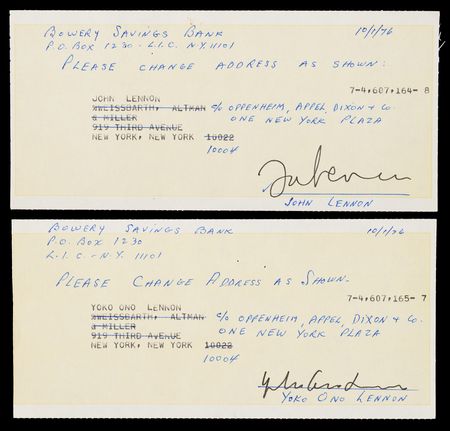 BOWERY SAVINGS BANK 10/1/76
P.O. BOX 1230 - L.I.C. N.Y. 11101
PLEASE CHANGE ADDRESS AS SHOWN:
7-4,607,164- 8
JOHN LENNON
%WEISSBARTH, ALTMAN c/o OPPENHEIM, APPEL, DIXON & Co.
& MILLER ONE NEW YORK PLAZA
919 THIRD AVENUE
NEW YORK, NEW YORK 10022
10004
John Lennon
JOHN LENNON
BOWERY SAVINGS BANK 10/1/76
P.O. BOX 1230
L.I.C. - N.Y. 11101
PLEASE CHANGE ADDRESS AS SHOWN-
7-4,607,165- 7
YOKO ONO LENNON
%WEISSBARTH, ALTMAN c/o OPPENHEIM, APPEL, DIXON & Co.
& MILLER ONE NEW YORK PLAZA
919 THIRD AVENUE
NEW YORK, NEW YORK 10022
10004
Yoko Ono Lennon
YOKO ONO LENNON